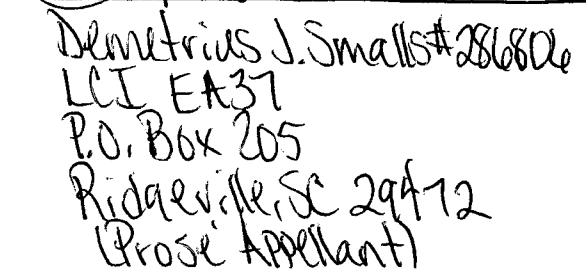 Demetrius J. Smalls #286806
LCI EA37
P.O. Box 205
Ridgeville, SC 29472
(Prose Appellant)